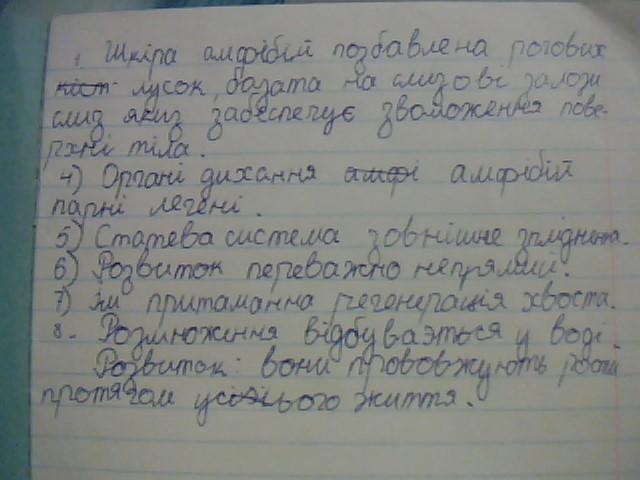 1. Шкіра амфібій позбавлена рогових
лусок, багата на слизові залози
слиз яких забеспечує зволоження пове-
рхні тіла.
4) Органі дихання амфібій
парні легені.
5) Статева система зовнішнє
6) Розвиток переважно непрямий.
7) їм притаманна регенерація хвоста.
8. Розмноження відбуваэться у воді.
Розвиток: вони прововжують
протягом усього життя.